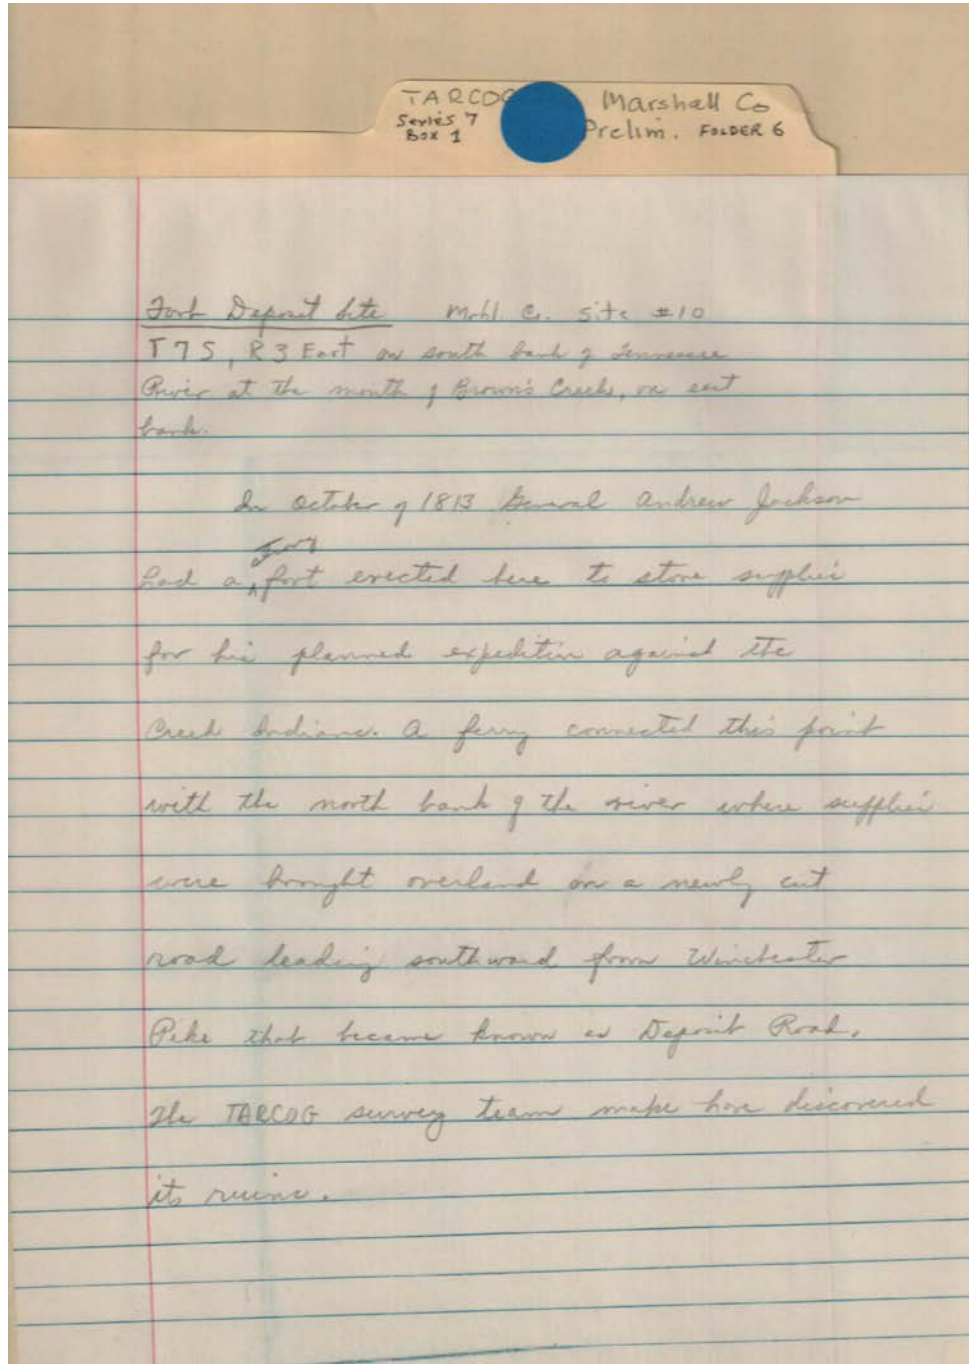 TARCOG Marshall Co
Series 7 Prelim. FOLDER 6
Box 1
Fort Deposit Site Mrhl. Co. Site #10
T 7 S, R 3 East on south bank of Tennessee
River at the mouth of Brown's Creek, on east
bank.
In October of 1813 General Andrew Jackson
had a fort erected here to store supplies
for his planned expedition against the
Creek Indians. A ferry connected this point
with the north bank of the river where supplies
were brought overland on a newly cut
road leading southward from Winchester
Pike that became known as Deposit Road.
The TARCOG survey team make have discovered
its ruins.